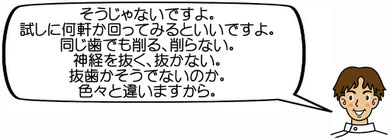 そうじゃないですよ。
試しに何軒か回ってみるといいですよ。
同じ歯でも削る、削らない。
神経を抜く、抜かない。
抜歯かそうでないのか。
色々と違いますから。